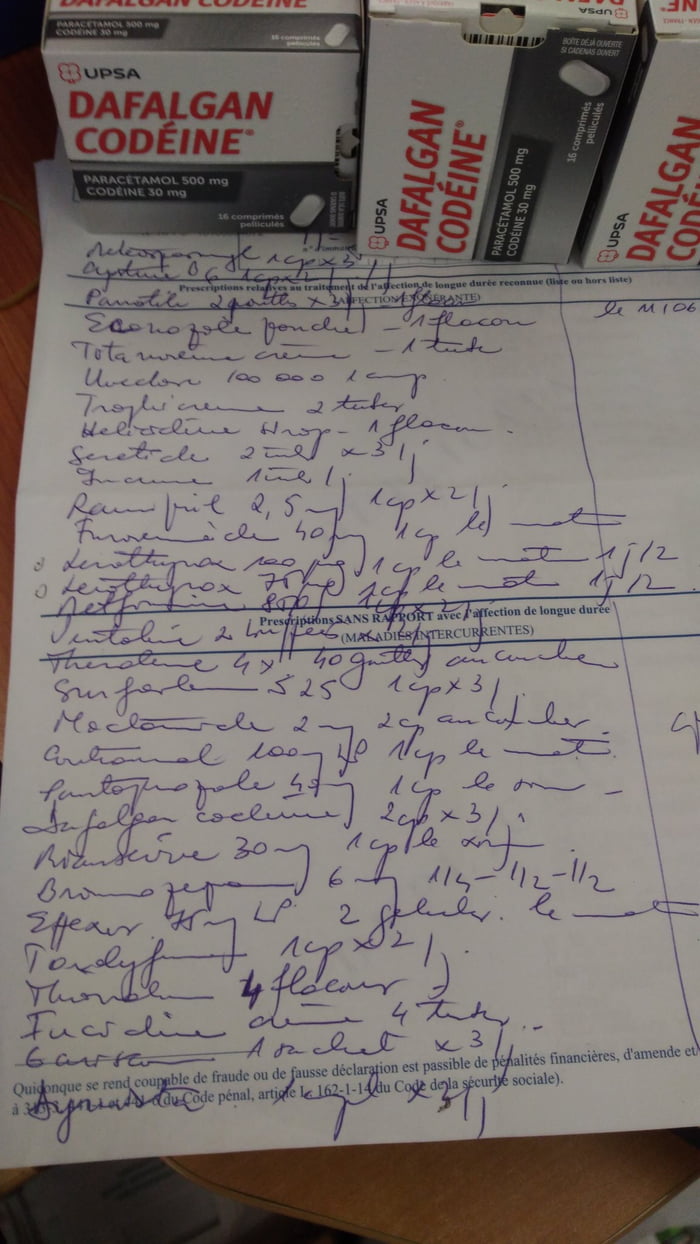 DAFALGAN CODÉINE
PARACÉTAMOL 500 mg
CODÉINE 30 mg
16 comprimés
pelliculés
UPSA
DAFALGAN
CODÉINE®
PARACÉTAMOL 500 mg
CODÉINE 30 mg
16 comprimés
pelliculés
BOÎTE DÉJÀ OUVERTE
SI CADENAS OUVERT
UPSA
DAFALGAN
CODÉINE®
PARACÉTAMOL 500 mg
CODÉINE 30 mg
16 comprimés
pelliculés
UPSA
DAFALGAN
CODÉINE
1cp x 3/j
Cystine B6 1cp x 2/j
Prescriptions relatives au traitement de l'affection de longue durée reconnue (liste ou hors liste)
(AFFECTION EXONÉRANTE)
Panotile 2 gouttes x 3/j
Econazole poudre - 1 flacon
crème - 1 tube
Uvedose 100 000 1 amp
2 tubes
sirop - 1 flacon
Seretide 2 inh x 3/j
1 inh/j
Ramipril 2,5 mg 1cp x 2/j
Furosémide 40 mg 1cp le matin
Levothyrox 100 µg 1cp le matin 1j/2
Levothyrox 75 µg 1cp le matin 1j/2
Metformine 1cp x 2/j
Prescriptions SANS RAPPORT avec l'affection de longue durée
(MALADIES INTERCURRENTES)
Ventoline 2 bouffées
Theralene 4% 40 gouttes au coucher
S 25 1cp x 3/j
2 mg 2cp au coucher
Contramal 100 mg LP 1cp le matin
Pantoprazole 40 mg 1cp le soir
Dafalgan codeine 2cp x 3/j
Miansérine 30 mg 1cp le soir
Bromazepam 6 mg 1/4 - 1/2 - 1/2
Effexor 75 mg LP 2 gélules le matin
Tardyferon 1cp x 2/j
4 flacons
Fucidine crème 4 tubes
1 sachet x 3/j
Quiconque se rend coupable de fraude ou de fausse déclaration est passible de pénalités financières, d'amende et
du Code pénal, article L. 162-1-14 du Code de la sécurité sociale).
x 3/j